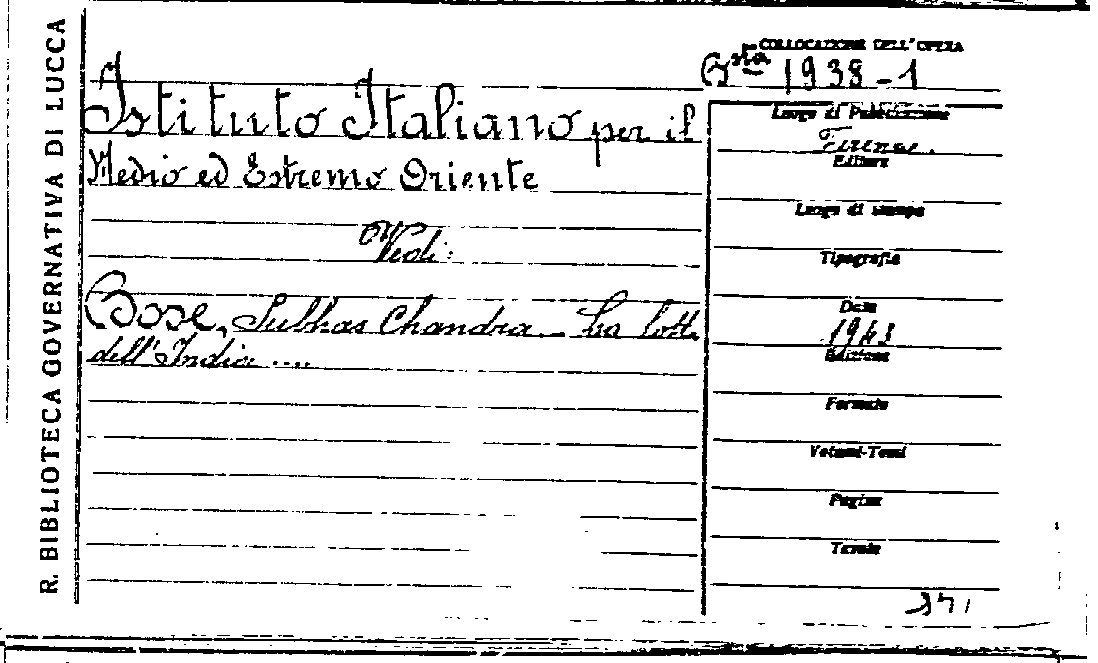 R. BIBLIOTECA GOVERNATIVA DI LUCCA
COLLOCAZIONE DELL'OPERA
Bsta 1938-1
Istituto Italiano per il
Medio ed Estremo Oriente
Vedi:
Bose, Subhas Chandra - La lotta
dell'India ....
Luogo di Pubblicazione
Firenze.
Editore
Luogo di stampa
Tipografia
Data
1943
Edizione
Formato
Volumi-Tomi
Pagine
Tavole